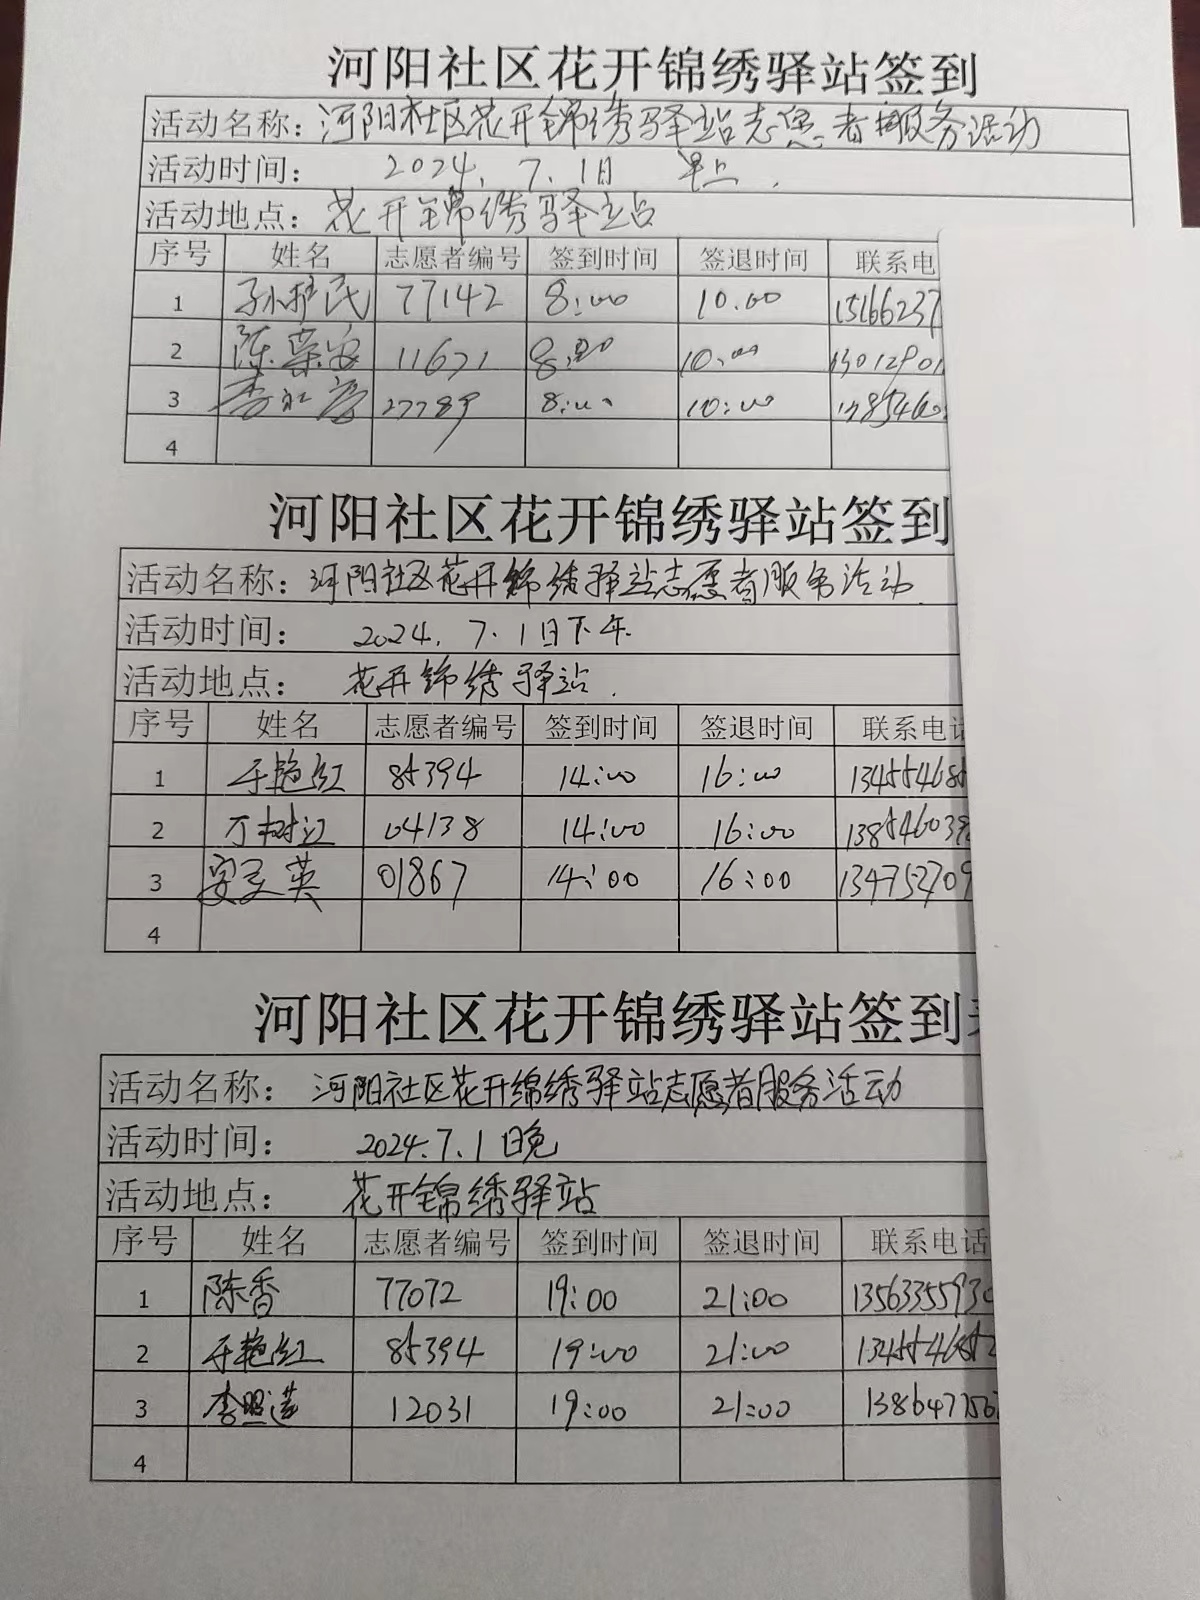 河阳社区花开锦绣驿站签到
活动名称：河阳社区花开锦绣驿站志愿者服务活动
活动时间： 2024.7.1日 早上.
活动地点：花开锦绣驿站
序号 姓名 志愿者编号 签到时间 签退时间 联系电
1 孙护民 77142 8:00 10.00 15166237
2 陈荣安 11671 8:00 10:00 13012901
3 27789 8:00 10:00 1385460
4
河阳社区花开锦绣驿站签到
活动名称：河阳社区花开锦绣驿站志愿者服务活动.
活动时间： 2024.7.1日下午.
活动地点： 花开锦绣驿站.
序号 姓名 志愿者编号 签到时间 签退时间 联系电话
1 于艳红 85394 14:00 16:00 134554685
2 丁树江 04138 14:00 16:00 138546039
3 安美英 01867 14:00 16:00 134752709
4
河阳社区花开锦绣驿站签到
活动名称：河阳社区花开绵绣驿站志愿者服务活动
活动时间： 2024.7.1日晚
活动地点： 花开锦绣驿站
序号 姓名 志愿者编号 签到时间 签退时间 联系电话
1 陈香 77072 19:00 21:00 1356335593
2 于艳红 85394 19:00 21:00 1345546852
3 李照莲 12031 19:00 21:00 138647756
4